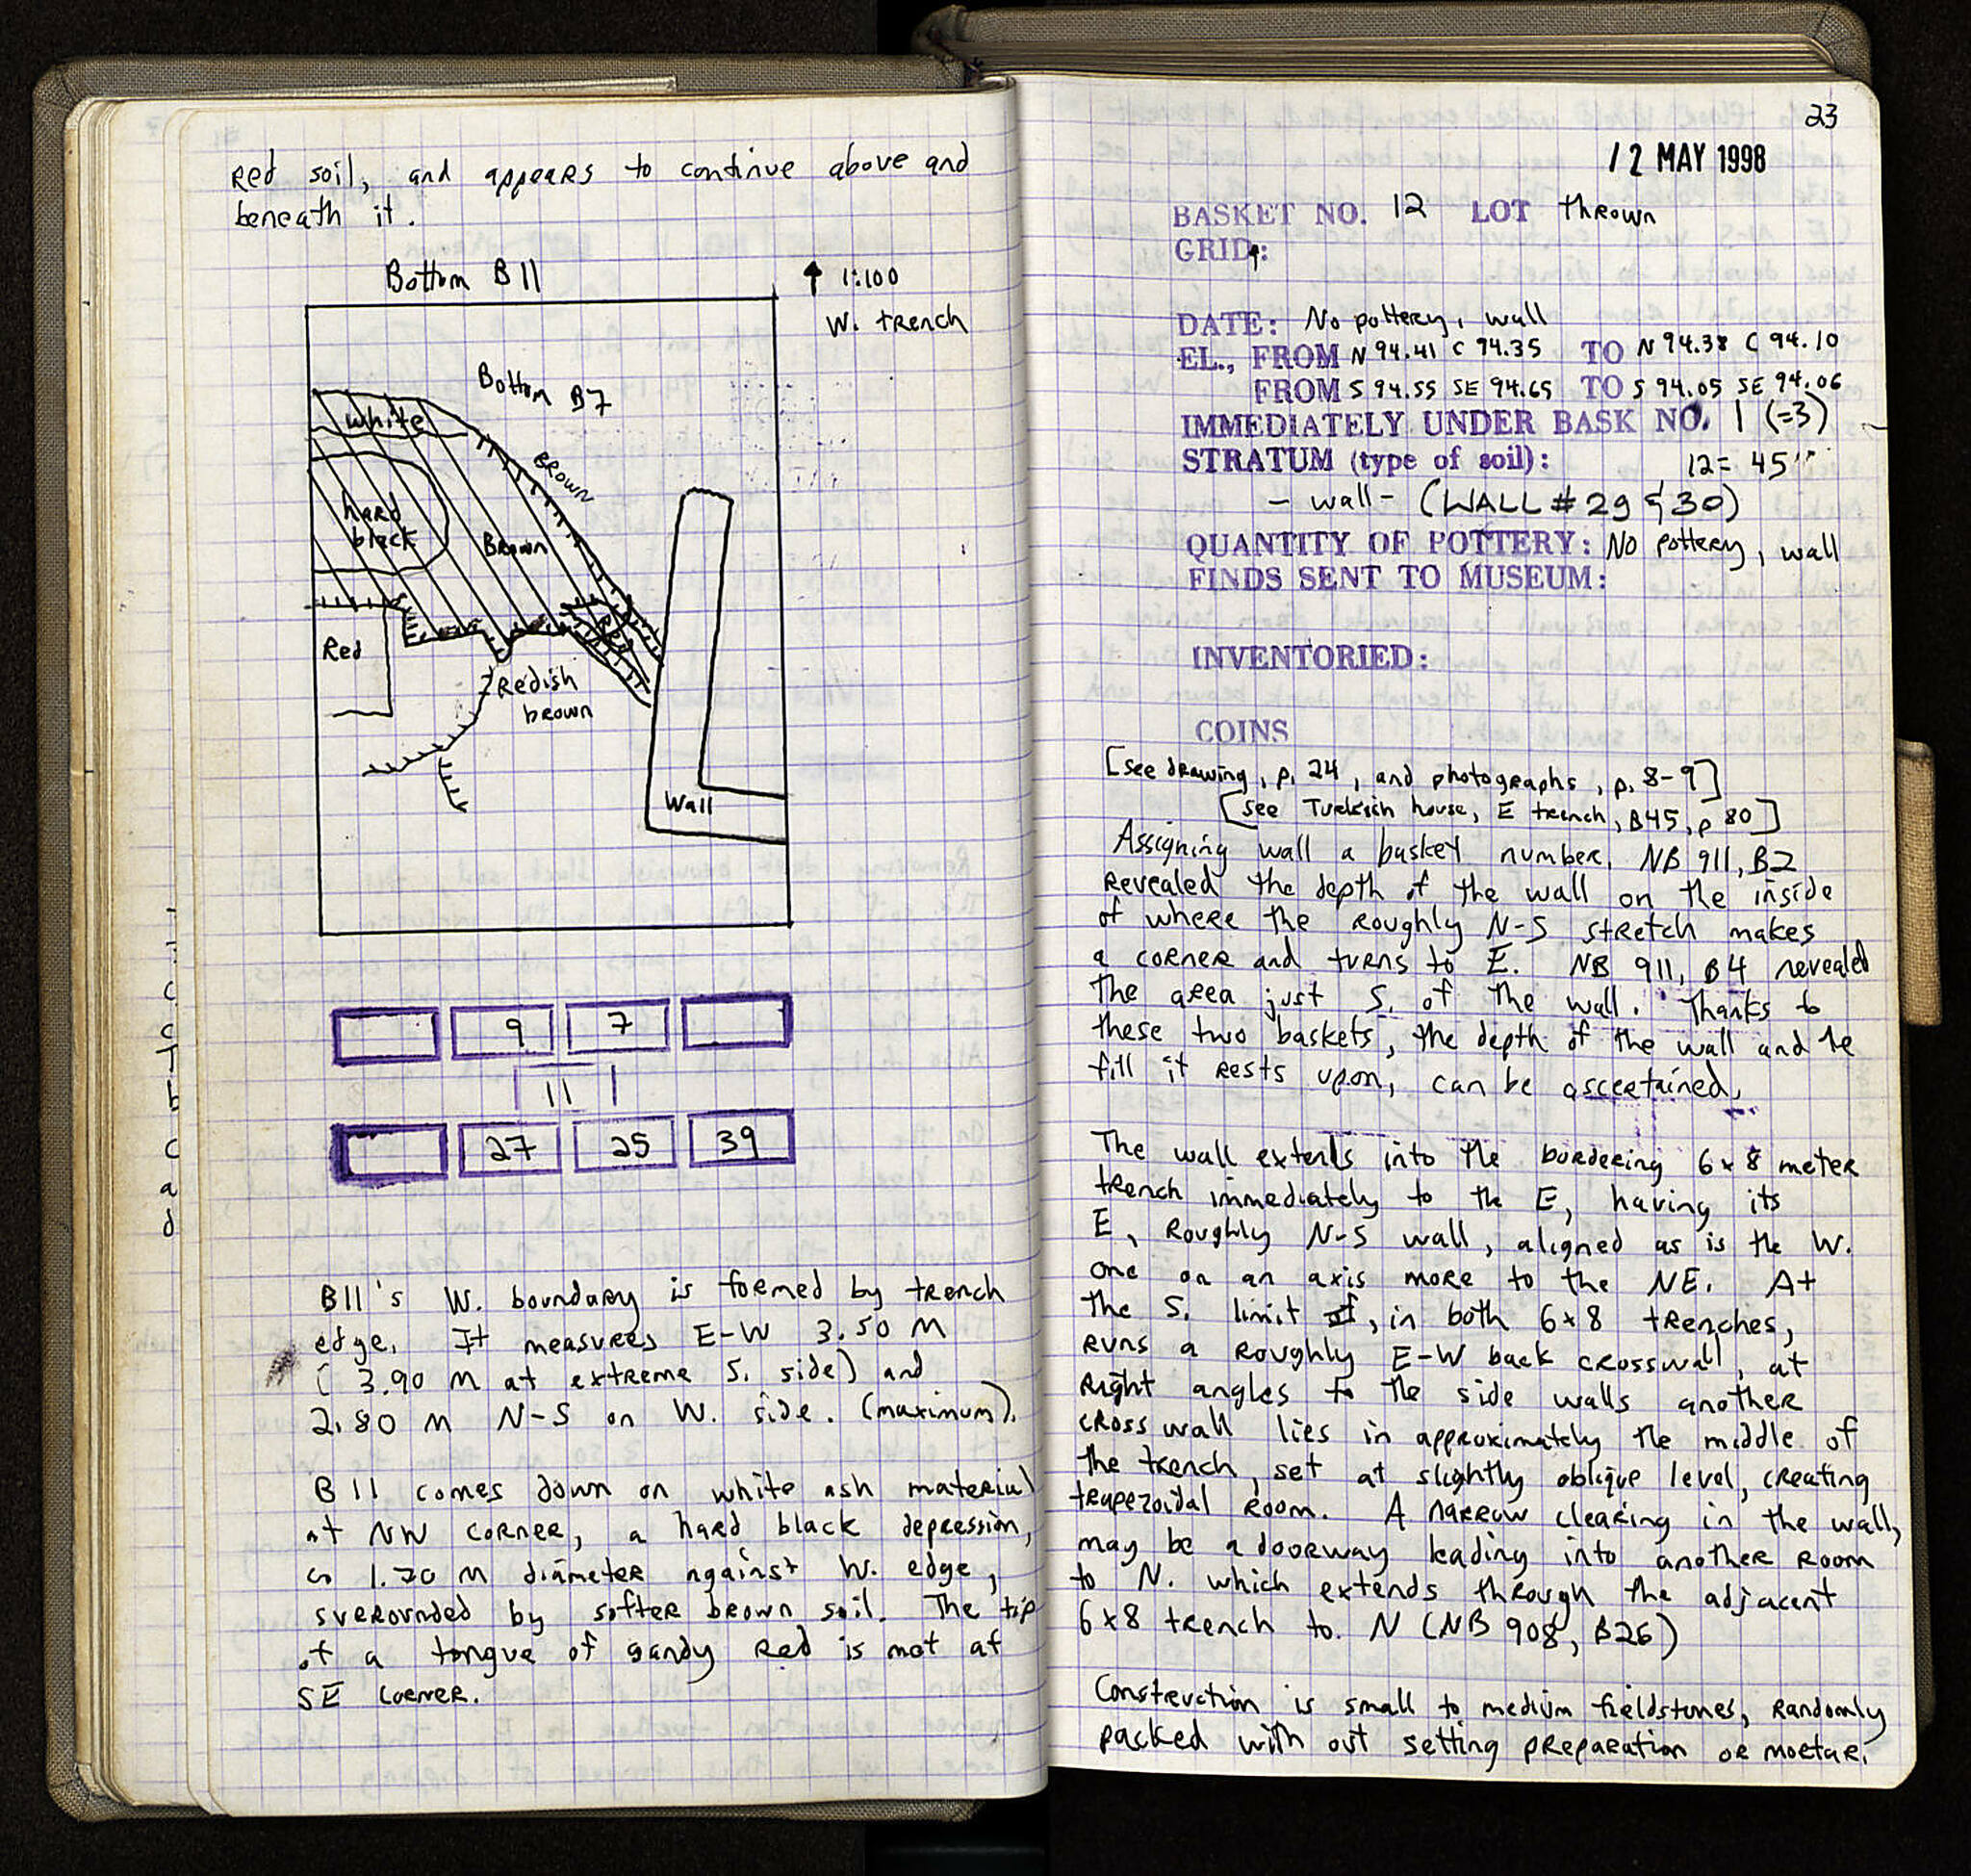 Red soil, and appears to continue above and
beneath it.
Bottom B 11
1:100
W. trench
Bottom B7
white
Brown
hard
black
Brown
Red
Red
Redish
brown
Wall
9 7
11
27 25 39
B11's W. boundary is formed by trench
edge. It measures E-W 3.50 M
( 3.90 M at extreme S. side) and
2.80 M N-S on W. side. (maximum).
B 11 comes down on white ash material
at NW corner, a hard black depression,
1.70 M diameter against W. edge,
surrounded by softer brown soil. The tip
of a tongue of sandy Red is met at
SE corner.
23
12 MAY 1998
BASKET NO. 12 LOT Thrown
GRID:
DATE: No pottery, wall
EL., FROM N 94.41 C 94.35 TO N 94.38 C 94.10
FROM S 94.55 SE 94.65 TO S 94.05 SE 94.06
IMMEDIATELY UNDER BASK NO. 1 (=3)
STRATUM (type of soil): 12 = 45
- wall - (WALL #29 & 30)
QUANTITY OF POTTERY: No pottery, wall
FINDS SENT TO MUSEUM:
INVENTORIED:
COINS
[see drawing, p. 24, and photographs, p. 8-9]
[see Turkish house, E trench, B45, p 80]
Assigning wall a basket number. NB 911, B2
revealed the depth of the wall on the inside
of where the roughly N-S stretch makes
a corner and turns to E. NB 911, B4 revealed
the area just S. of the wall. Thanks to
these two baskets, the depth of the wall and te
fill it rests upon, can be ascertained.
The wall extends into the bordering 6x8 meter
trench immediately to the E, having its
E, Roughly N-S wall, aligned as is the W.
one on an axis more to the NE. At
the S. limit, in both 6x8 trenches,
runs a roughly E-W back crosswall, at
right angles to the side walls another
cross wall lies in approximately the middle of
the trench, set at slightly oblique level, creating
trapezoidal room. A narrow clearing in the wall,
may be a doorway leading into another room
to N. which extends through the adjacent
6x8 trench to N (NB 908, B26)
Construction is small to medium fieldstones, randomly
packed with out setting preparation or mortar.